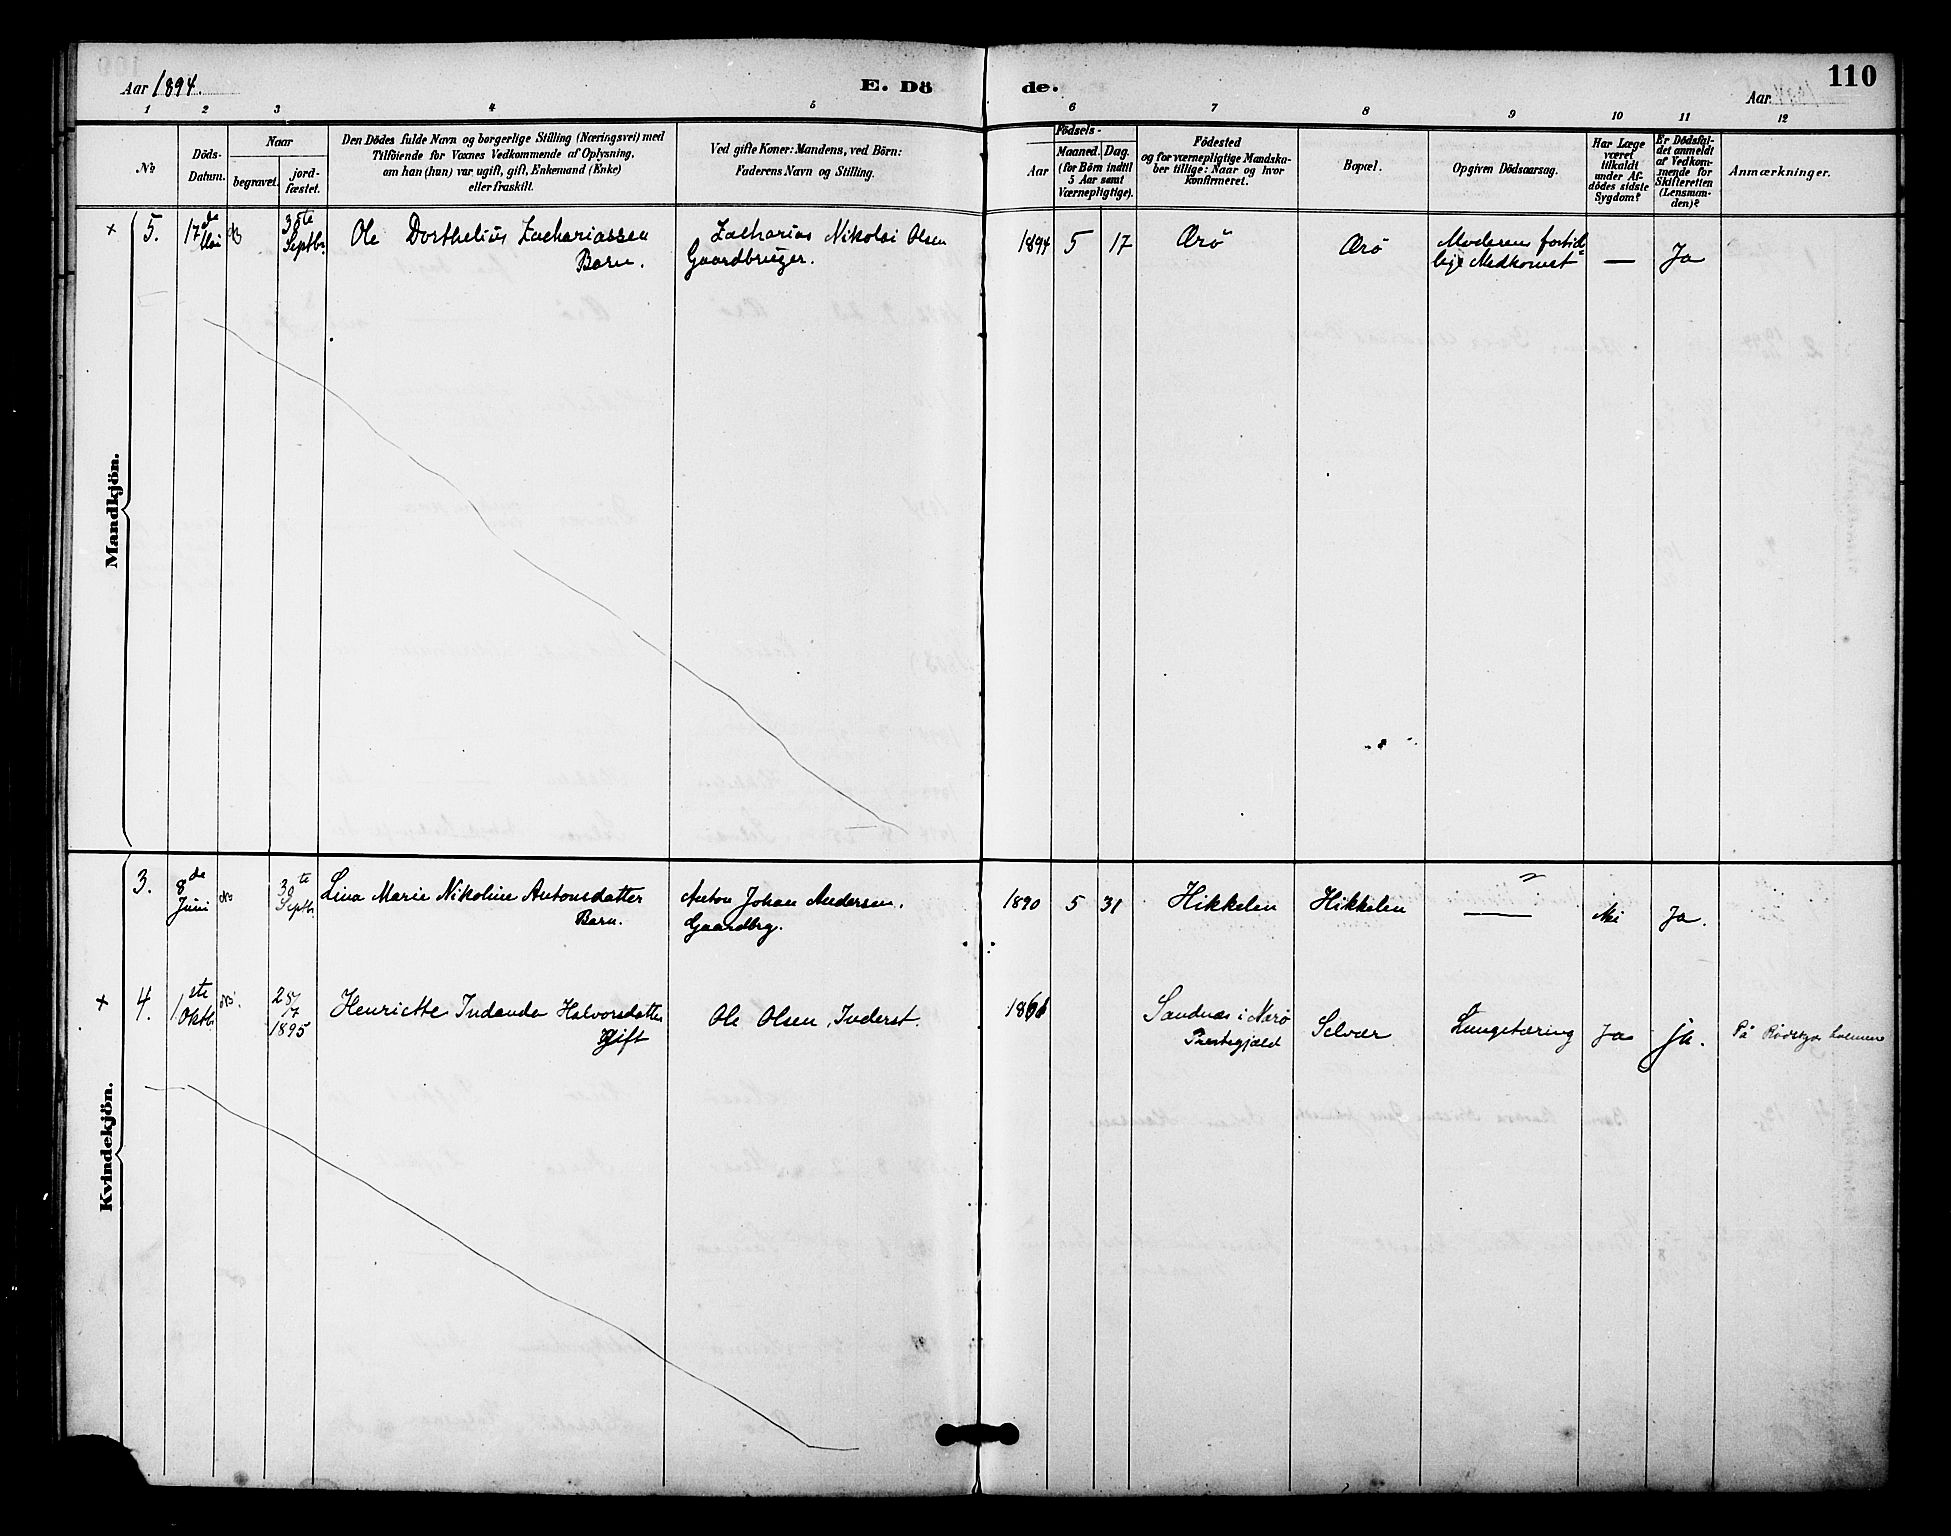 Aar 1894.
E. Dö
de.
Aar
110
1 2 3 4 5 6 7 8 9 10 11 12
No
Döds-
Datum.
Naar
begravet.
jord-
fæstet.
Den Dödes fulde Navn og borgerlige Stilling (Næringsvei) med
Tilföiende for Voxnes Vedkommende af Oplysning,
om han (hun) var ugift, gift, Enkemand (Enke)
eller fraskilt.
Ved gifte Koner: Mandens, ved Börn:
Faderens Navn og Stilling.
Födsels-
Aar
Maaned. Dag.
(for Börn indtil
5 Aar samt
Værnepligtige).
Födested
og for værnepligtige Mandska-
ber tillige: Naar og hvor
konfirmeret.
Bopæl.
Opgiven Dödsaarsag.
Har Læge
været
tilkaldt
under Af-
dödes sidste
Sygdom?
Er Dödsfal-
det anmeldt
af Vedkom-
mende for
Skifteretten
(Lensman-
den)?
Anmærkninger.
Mandkjön.
+ 5. 17de Mai
30te Septbr.
Ole Dorthelius Zachariassen
Barn.
Zacharias Nikolai Olsen
Gaardbruger.
1894 5 17 Ærö Ærö
Moderens fortid
lige Nedkomst
— Ja
Kvindekjön.
3. 8de Juni
30te Septbr
Lina Marie Nikoline Antonsdatter
Barn.
Anton Johan Andersen.
Gaardbrg.
1890 5 31 Hikkelen Hikkelen — Nei Ja.
+ 4. 1ste Oktbr
28/7 1895
Henriette Halvorsdatter
Gift
Ole Olsen, Inderst.
Sandnæs i Nærö
Prestegjæld
Selvær Lungetæring Ja ja. På